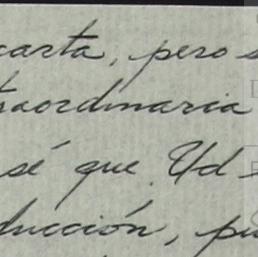 carta, pero s
traordinaria
sé que Ud
ducción, pu